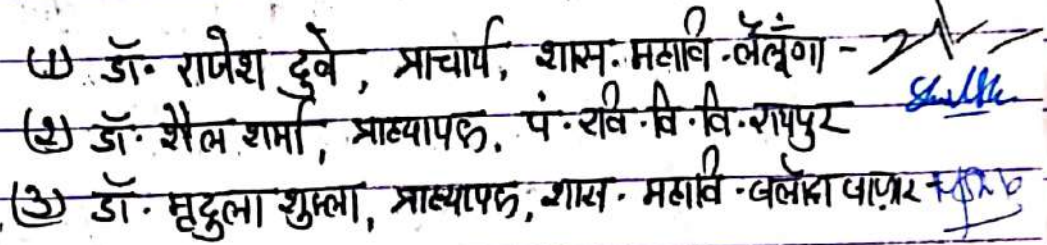 (1) डॉ. राजेश दुबे, प्राचार्य, शास. महावि. लैलूंगा -
(2) डॉ. शैल शर्मा, प्राध्यापक, पं. रवि. वि. वि. रायपुर
(3) डॉ. मृदुला शुक्ला, प्राध्यापक, शास. महावि. बलौदा बाजार -